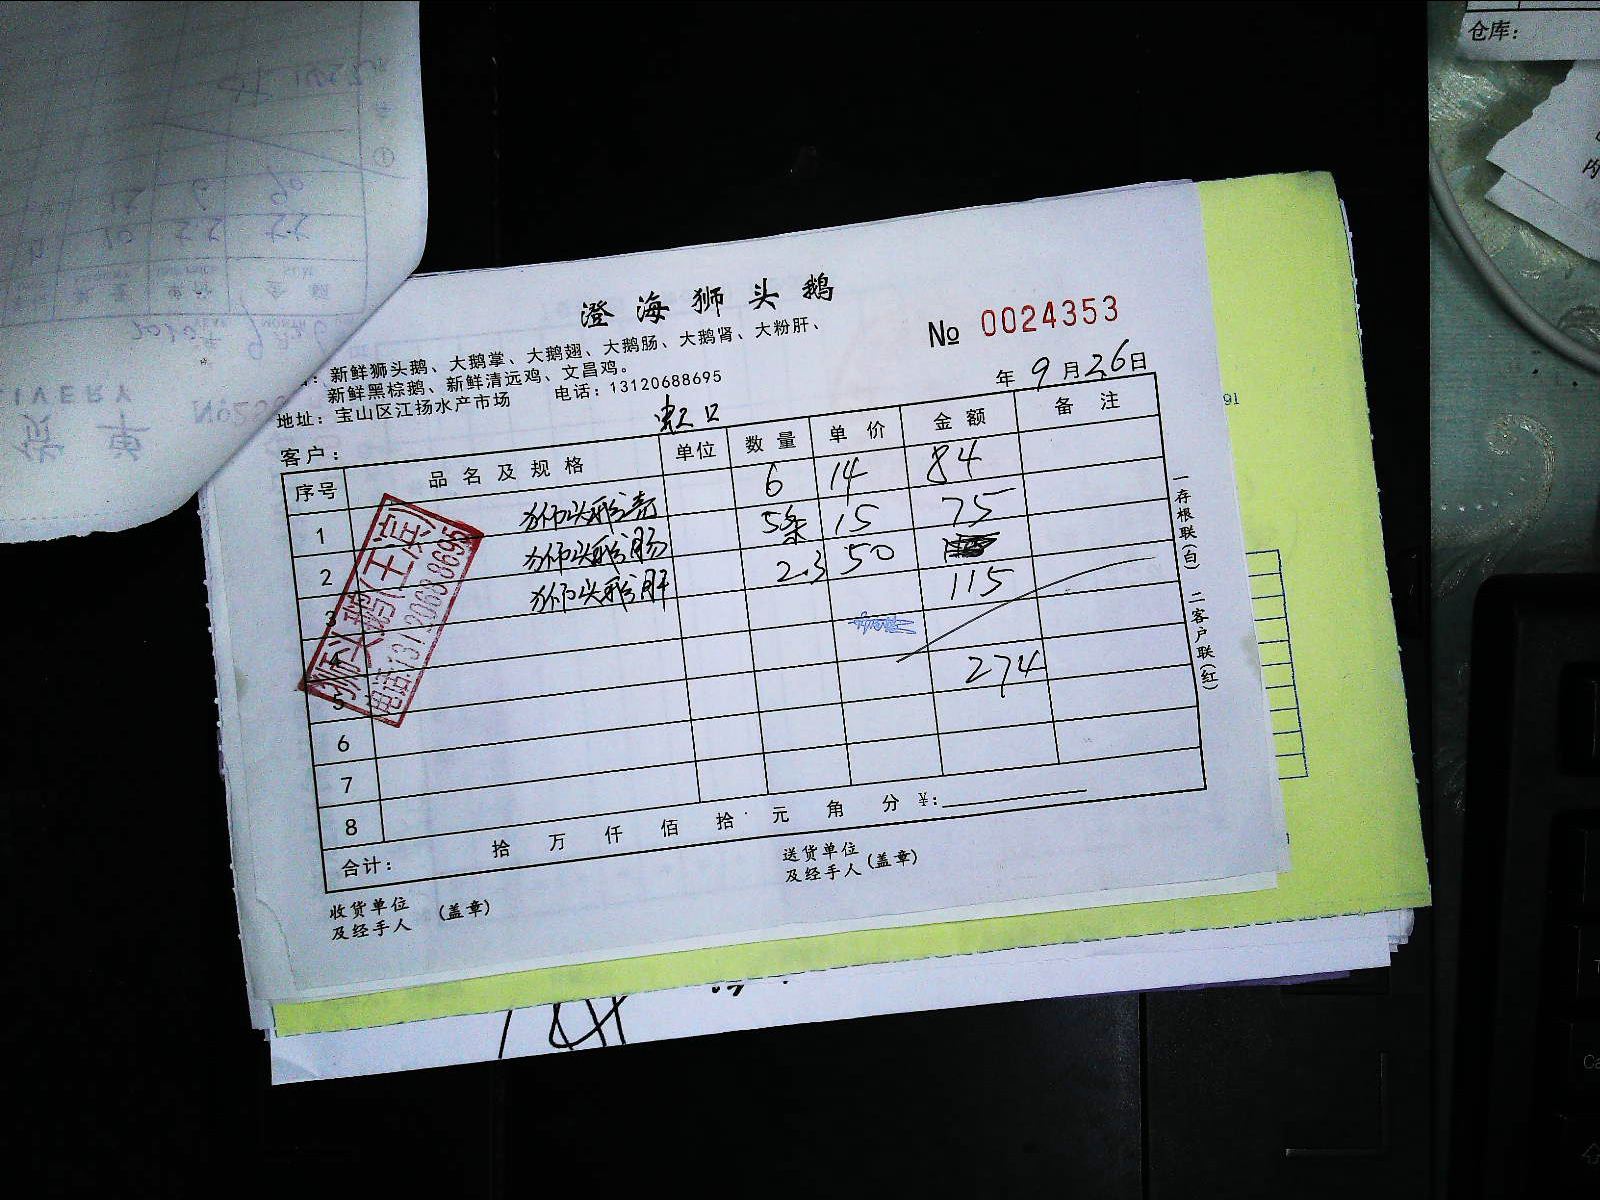 澄海狮头鹅
№ 0024353
新鲜狮头鹅、大鹅掌、大鹅翅、大鹅肠、大鹅肾、大粉肝、
新鲜黑棕鹅、新鲜清远鸡、文昌鸡。
地址：宝山区江扬水产市场 电话：13120688695
年 9 月 26 日
客户： 虹口
序号 品名及规格 单位 数量 单价 金额 备注
1 狮头鹅 6 14 84
2 狮头鹅肠 5条 15 75
3 狮头鹅肝 2.3 50 115
4
5 274
6
7
8
合计： 拾 万 仟 佰 拾 元 角 分 ¥:
收货单位
及经手人 (盖章)
送货单位
及经手人 (盖章)
一存根联(白) 二客户联(红)
狮头鹅(王宾)
电话:13120688695
仓库:
内
91
LIVERY
货单